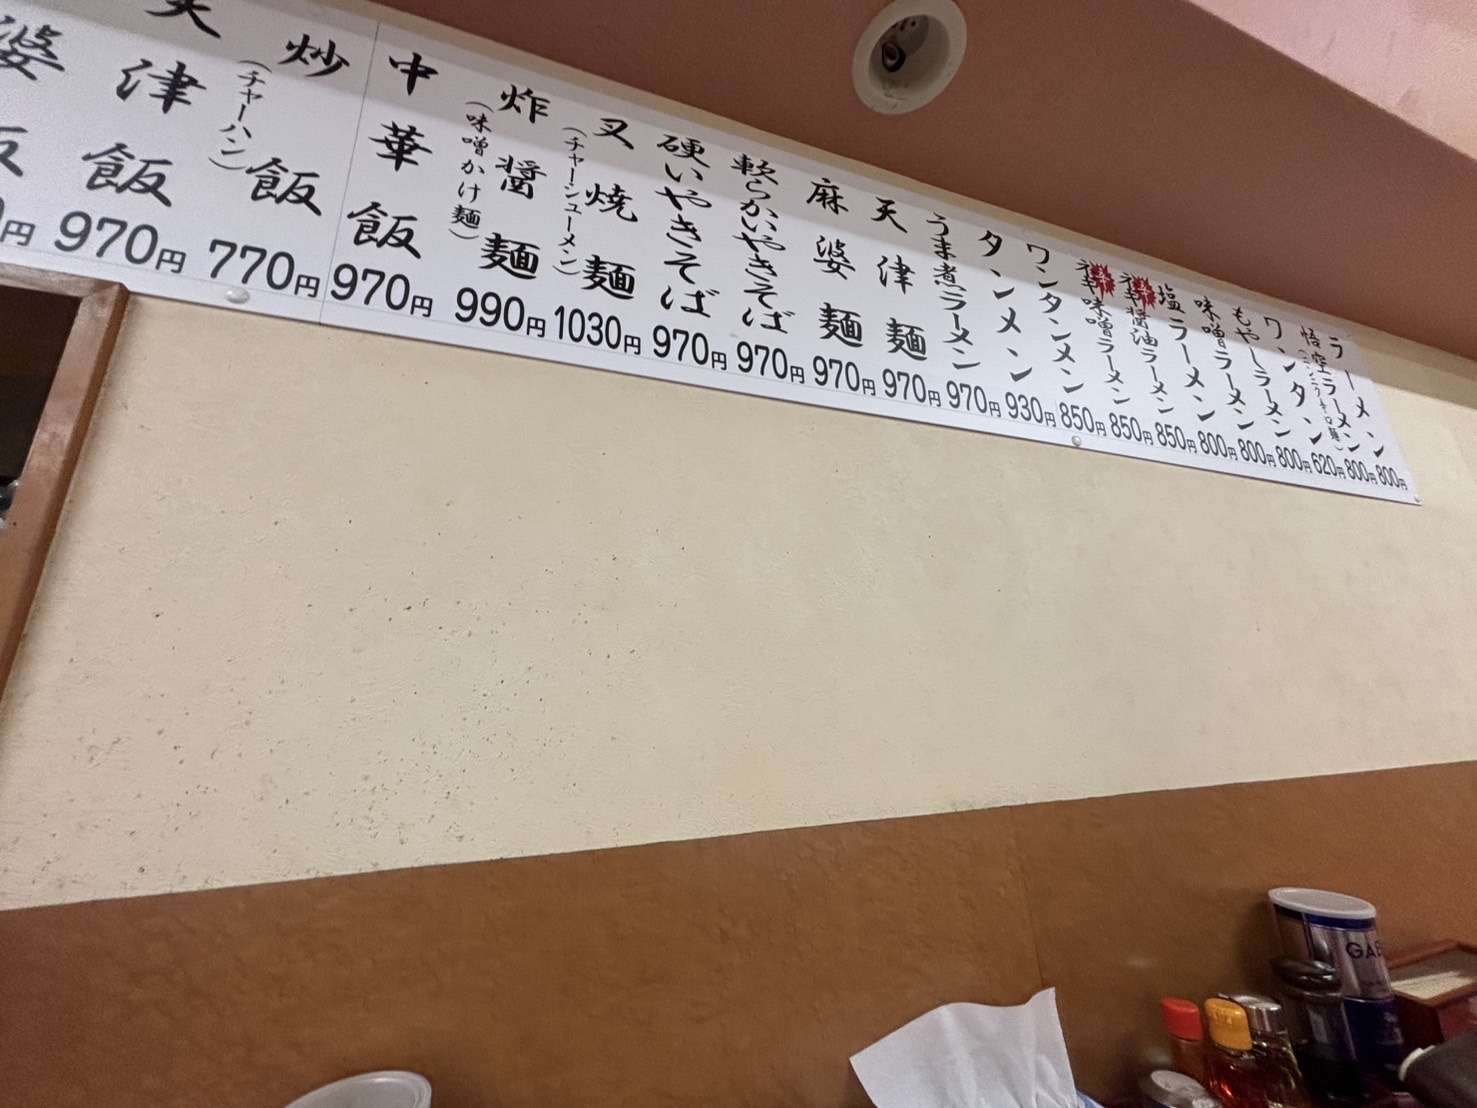 ラーメン
800円
悟空ラーメン
800円
ワンタン
620円
もやしラーメン
800円
味噌ラーメン
800円
塩ラーメン
800円
醤油ラーメン
850円
味噌ラーメン
850円
ワンタンメン
850円
タンメン
930円
うま煮ラーメン
970円
天津麺
970円
麻婆麺
970円
軟らかいやきそば
970円
硬いやきそば
970円
叉焼麺
(チャーシューメン)
1030円
炸醤麺
(味噌かけ麺)
990円
中華飯
970円
炒飯
(チャーハン)
770円
天津飯
970円
婆飯
円